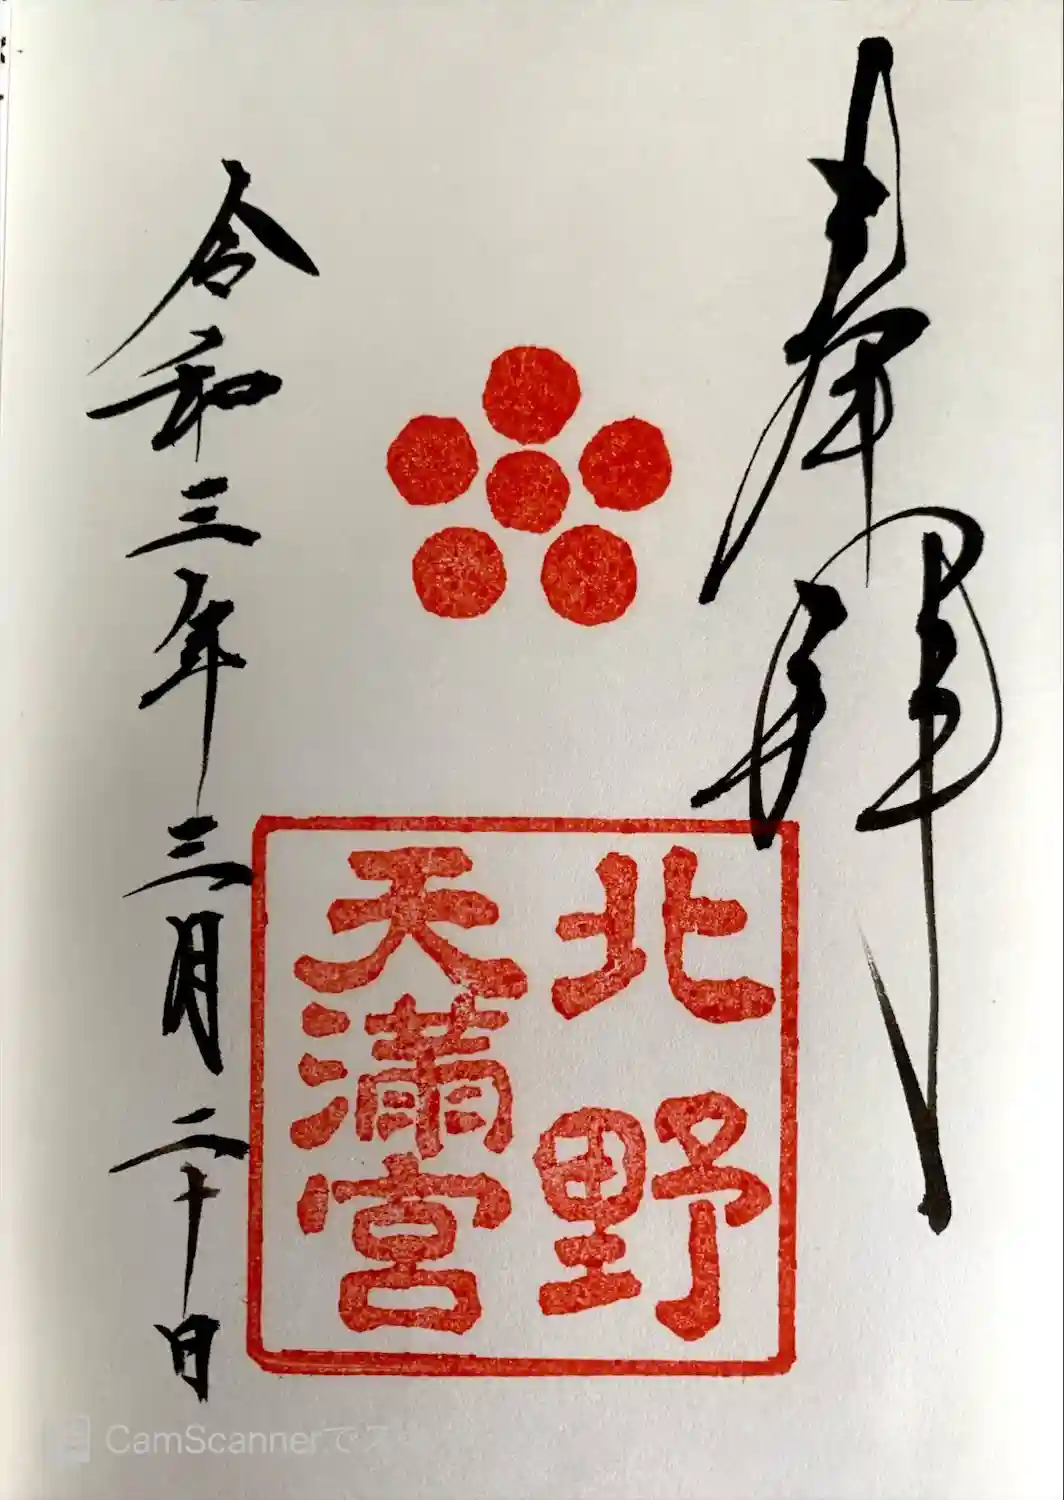 奉拝
北野
天満宮
令和三年三月二十日
CamScannerでス